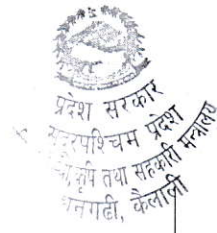 प्रदेश सरकार
सुदूरपश्चिम प्रदेश
कृषि तथा सहकारी मन्त्रालय
धनगढी, कैलाली